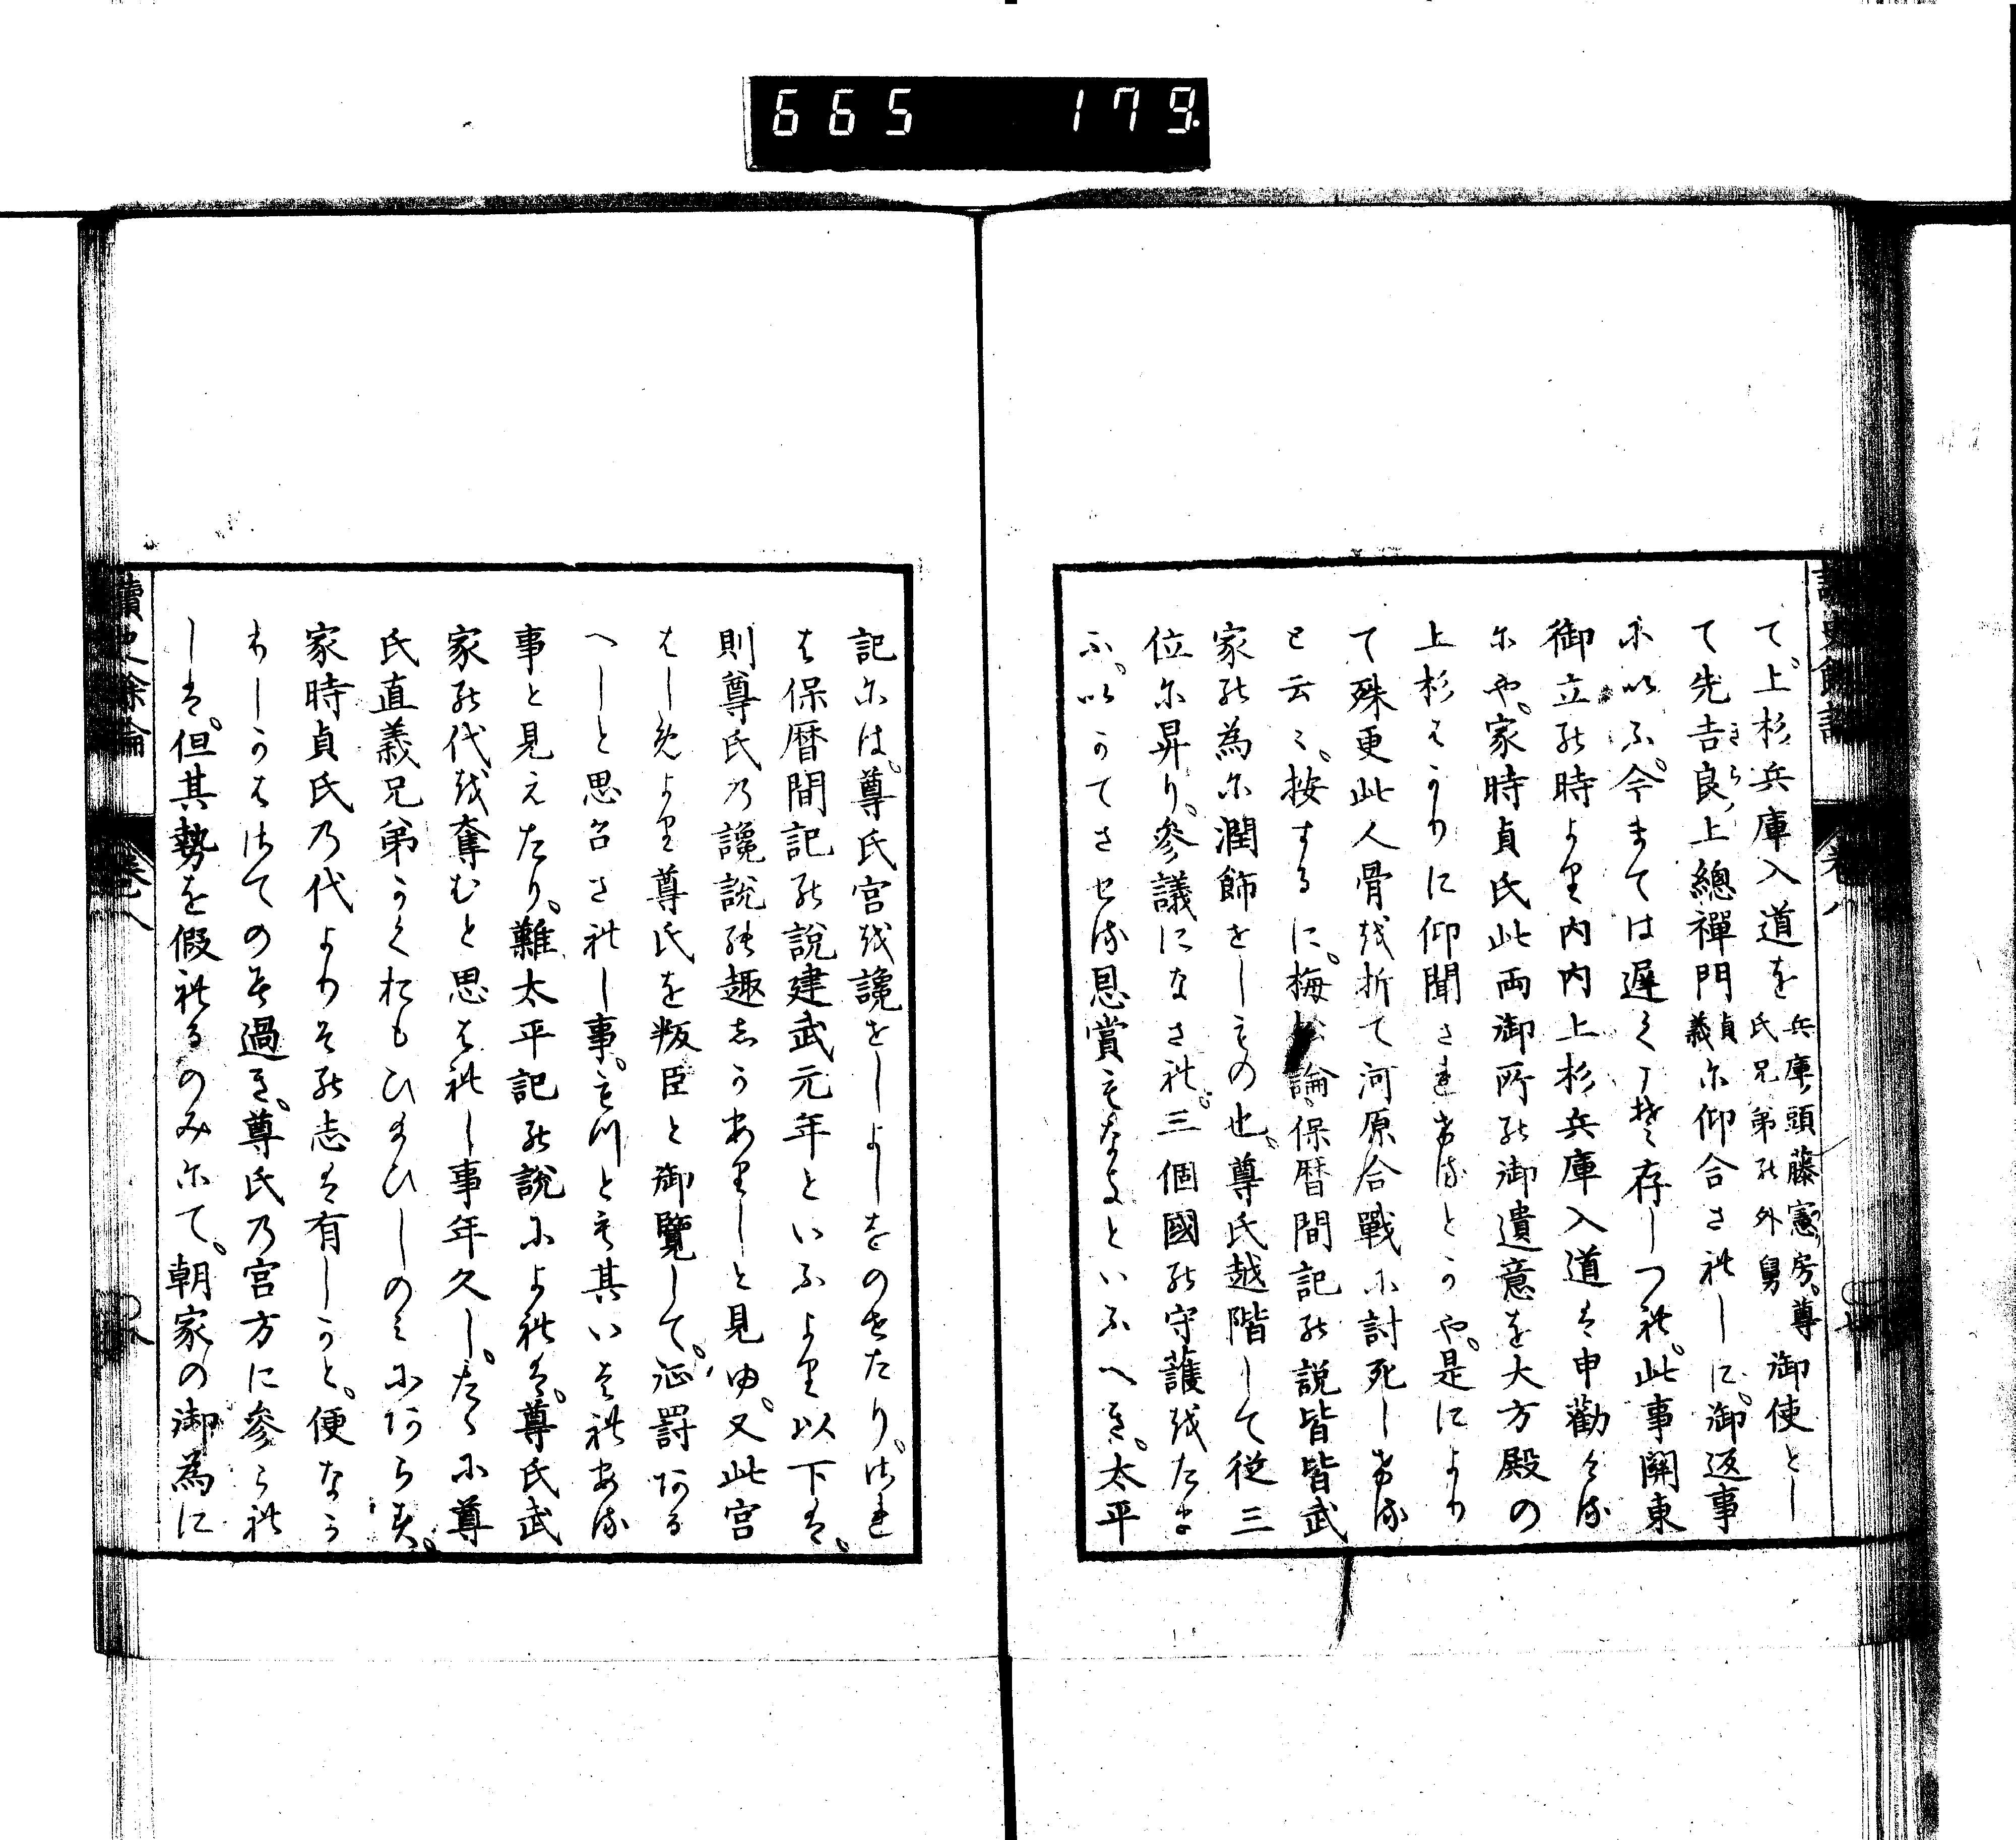 665 179
讀史餘論 巻八
て、上杉兵庫入道を 兵庫ノ頭藤憲房、尊氏兄弟の外舅 御使とし
て先吉良上總禪門 貞義 に仰合されしに、御返事
にいふ、今まては遅くこそ存しつれ、此事關東
御立の時より内内上杉兵庫入道は申勸ける
にや、家時貞氏此両御所の御遺意を大方殿の
上杉はかりに仰聞されけるとかや、是により
て殊更此人骨を折て河原合戰に討死しける
と云々、按するに、梅松論、保暦間記の説皆皆武
家の為に潤飾をしもの也、尊氏越階して従三
位に昇り、參議になされ、三個國の守護をたま
ふ、いかてさせる恩賞もなきといふへき、太平
記には、尊氏宮を讒せしよしをのせたり、され
は保暦間記の説建武元年といふより以下は、
則尊氏の讒説の趣しかありしと見ゆ、又此宮
はしめより尊氏を叛臣と御覽して、征罰ある
へしと思召されし事、もつとも其いはれある
事と見えたり、難太平記の説によれは、尊氏武
家の代を奪むと思はれし事年久し、たゝに尊
氏直義兄弟かくおもひ給ひしのみにあらす、
家時貞氏の代よりその志は有しかと、便なか
りしかはさてのみ過き、尊氏の宮方に參られ
しは、但其勢を假れるのみにて、朝家の御為に
讀史餘論 巻之八